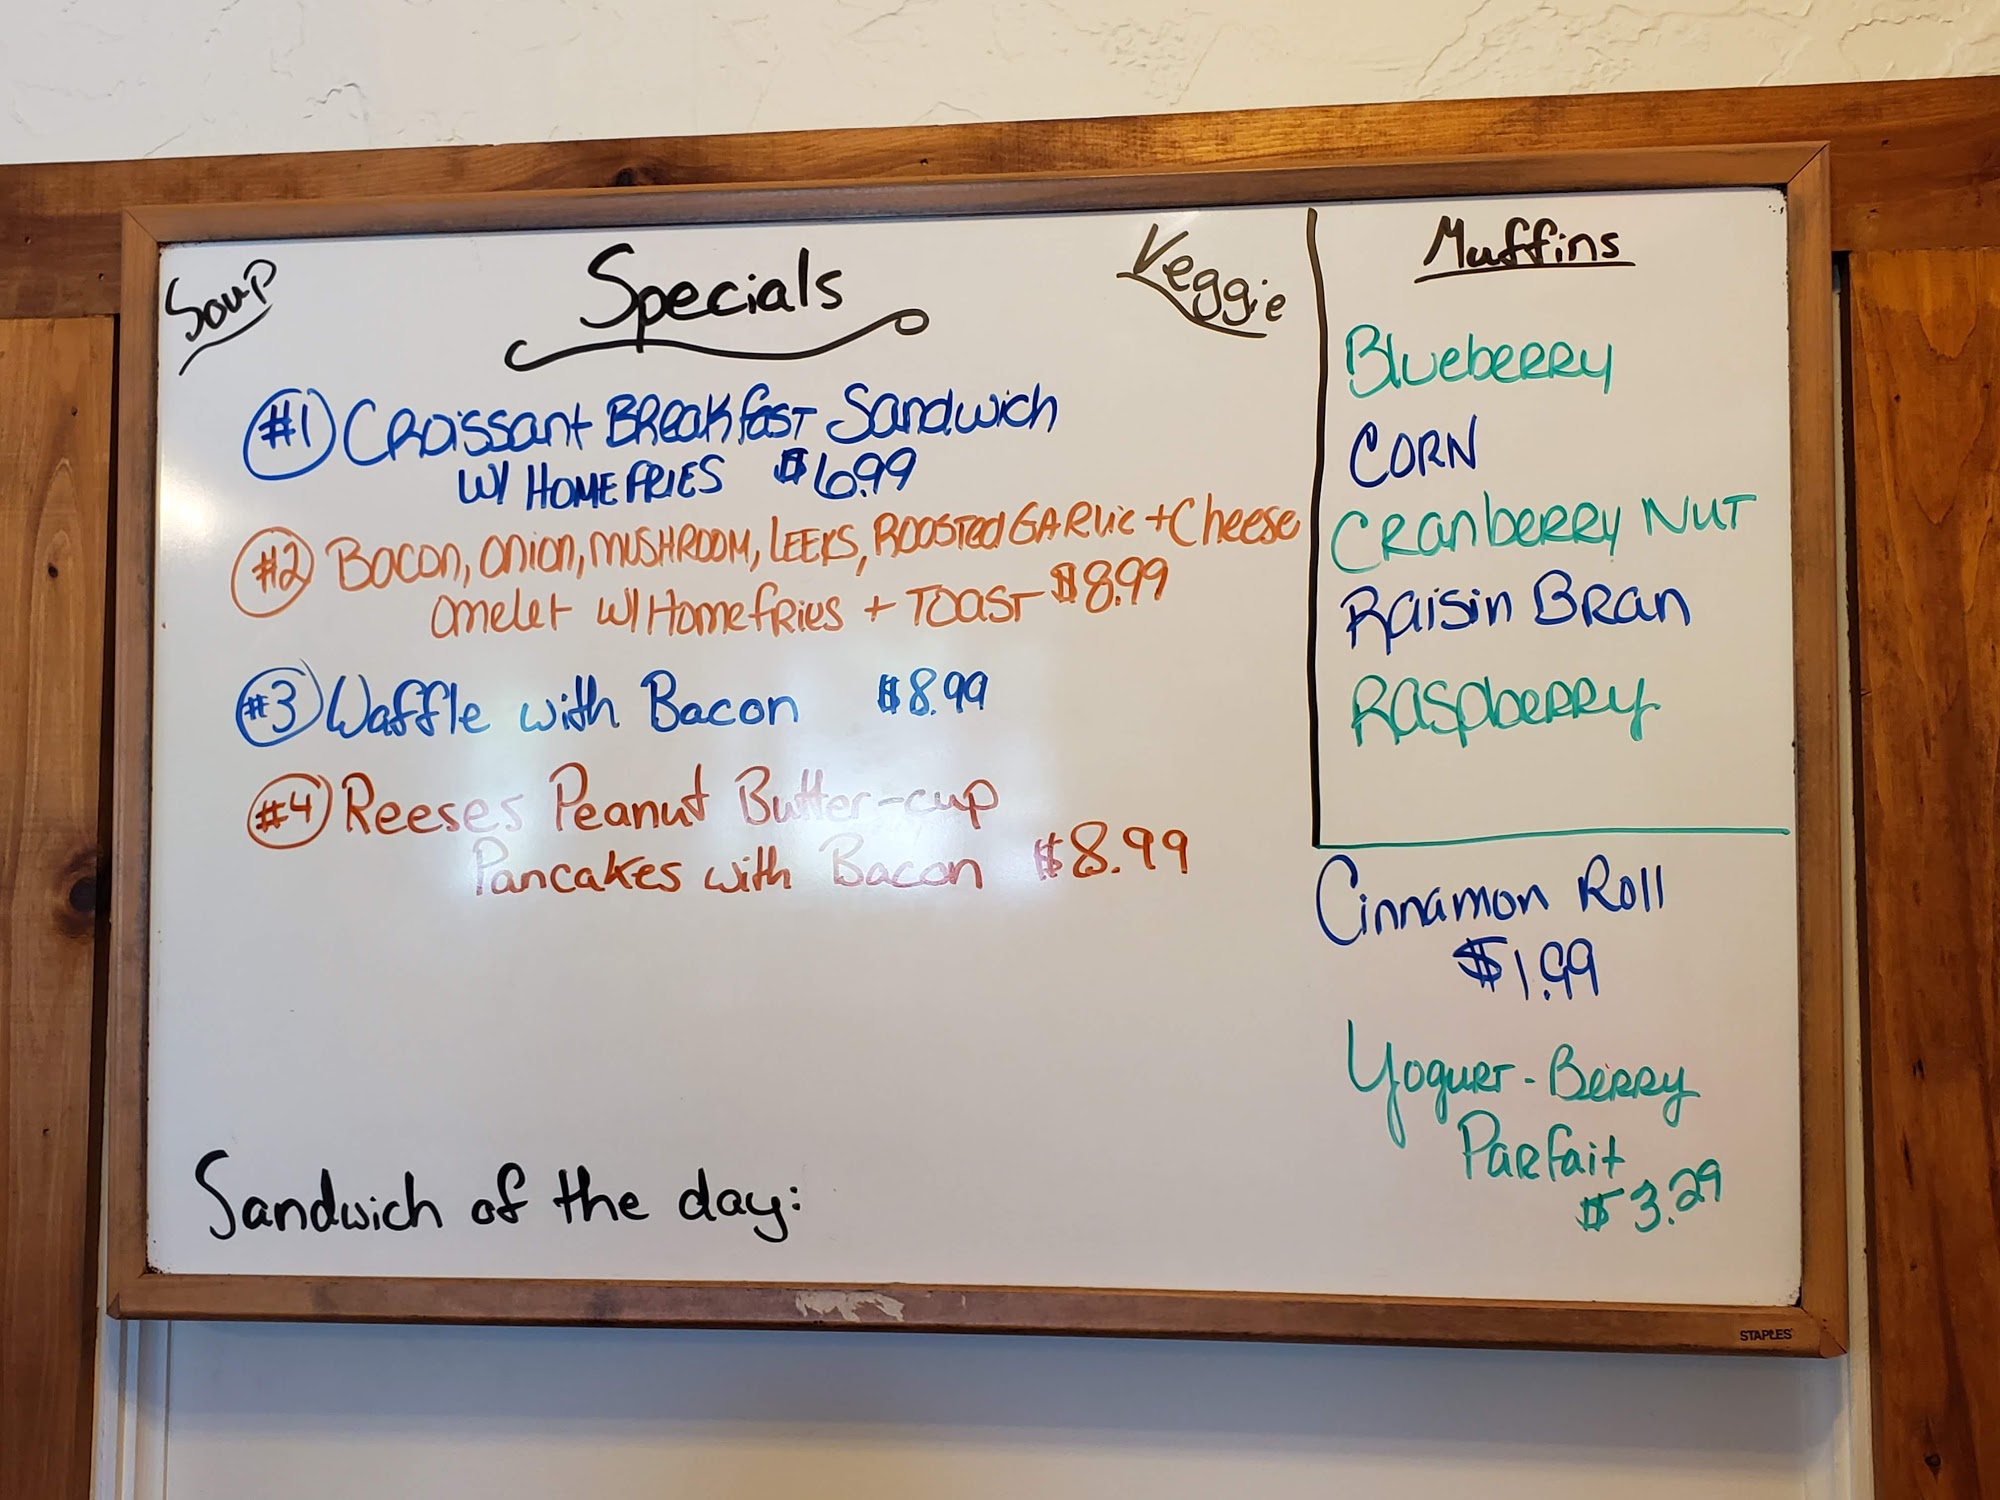 Soup
Specials
Veggie
#1 Croissant Breakfast Sandwich
w/ Homefries $6.99
#2 Bacon, onion, mushroom, leeks, Roosted Garlic + Cheese
omelet w/ Homefries + Toast $8.99
#3 Waffle with Bacon $8.99
#4 Reeses Peanut Butter-cup
Pancakes with Bacon $8.99
Sandwich of the day:
Muffins
Blueberry
Corn
Cranberry Nut
Raisin Bran
Raspberry
Cinnamon Roll
$1.99
Yogurt-Berry
Parfait
$3.29
STAPLES